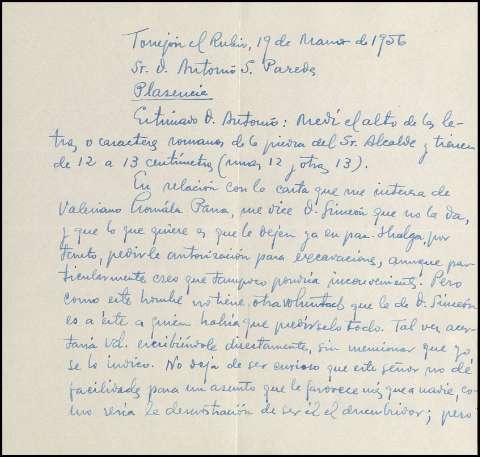 Torrejón el Rubio, 19 de Marzo de 1956
Sr. D. Antonio S. Paredes
Plasencia
Estimado D. Antonio: Medí el alto de las le-
tras o caracteres romanos de la piedra del Sr. Alcalde y tienen
de 12 a 13 centímetros (unas 12 y otras 13).
En relación con la carta que me interesa de
Valeriano Pana, me dice D. Simeón que no la da,
y que lo que quiere es que le dejen ya en paz. Huelga, por
tanto, pedirle autorización para excavaciones, aunque par-
ticularmente creo que tampoco pondría inconveniente. Pero
como este hombre no tiene otra voluntad que la de D. Simeón
es a éste a quien había que pedírselo todo. Tal vez acer-
taría Vd. escribiéndole directamente, sin mencionar que yo
se lo indico. No deja de ser curioso que este señor no dé
facilidades para un asunto que le favorece más que a nadie, co-
mo sería la demostración de ser él el descubridor; pero